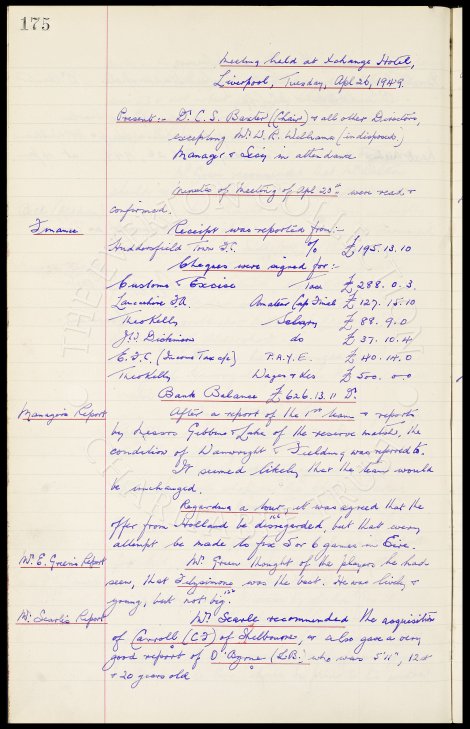 175
Meeting held at Exchange Hotel,
Liverpool, Tuesday, Apl 26, 1949.
Present:- Dr. C. S. Baxter (Chair) & all other Directors,
excepting Mr. W. R. Williams (indisposed)
Manager & Secy in attendance
Minutes of Meeting of Apl 20th were read &
confirmed.
Finance
Receipt was reported from:-
Huddersfield Town F.C. % £195.13.10
Cheques were signed for:-
Customs & Excise Tax £288.0.3.
Lancashire F.A. Amateur Cup Final £127.15.10
Theo Kelly Salary £88.9.0
Dickinson do £37.10.4
E.F.C. (Income Tax a/c) P.A.Y.E. £40.14.0
Theo Kelly Wages & Exes £500.0.0
Bank Balance £626.13.11 Dr.
Manager's Report
After a report of the 1st team & reports
by Messrs Gibbins & of the reserve match, the
condition of Wainwright & Fielding was referred to.
It seemed likely that the team would
be unchanged.
Regarding a tour, it was agreed that the
offer from Holland be disregarded, but that every
attempt be made to fix 5 or 6 games in Eire.
Mr. E. Green's Report
Mr. Green thought of the players he had
seen, that Fitzsimons was the best. He was lively &
young, but not big.
Mr. Searle's Report
Mr. Searle recommended the acquisition
of Carroll (CF) of Shelbourne, & also gave a very
good report of O'Byrne (LB.) who was 5'11", 12st
& 20 years old